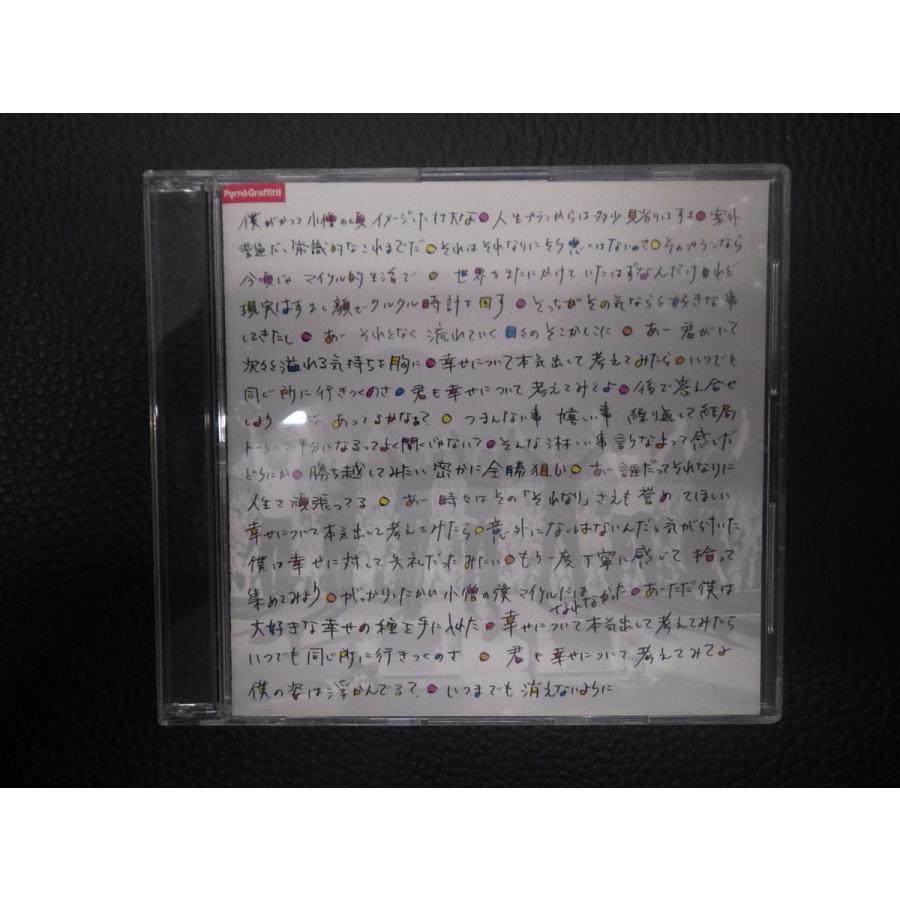 PornoGraffitti
僕がかつて小僧の頃イメージした壮大な●人生プランからは多少見劣りはする●案外
普通だし常識的なこれまでだ●それはそれなりにそう悪くはないのさ●そのプランなら
今頃じゃ マイケル的生活で ● 世界をまたにかけていたはずなんだけれど
現実はすまし顔でクルクル時計を回す●そっちがその気ならと好きな事
してきたし●あー それとなく 流れていく日々のそこかしこに●あー 君がいて
次々と溢れる気持ちを胸に●幸せについて本気出して考えてみたら●いつでも
同じ所に行きつくのさ●君も幸せについて考えてみてよ●後で答え合せ
しよう あってるかなぁ?●つまんない事 嬉しい事 繰り返して結局
トータルで半分になるってよく聞くじゃない?●そんな淋しい事言うなよって感じだ
どうにか●勝ち越してみたい密かに全勝狙い●あー誰だってそれなりに
人生を頑張ってる●あー時々はその「それなり」さえも誉めてほしい
幸せについて本気出して考えてみたら●意外になくはないんだと気が付いた
僕は幸せに対して失礼だったみたい●もう一度丁寧に感じて拾って
集めてみよう●がっかりしたかい小僧の僕マイケルにはなれなかった●あーただ僕は
大好きな幸せの種を手に入れた●幸せについて本気出して考えてみたら
いつでも同じ所に行きつくのさ●君も幸せについて考えてみてよ
僕の姿は浮かんでる?●いつまでも消えないように